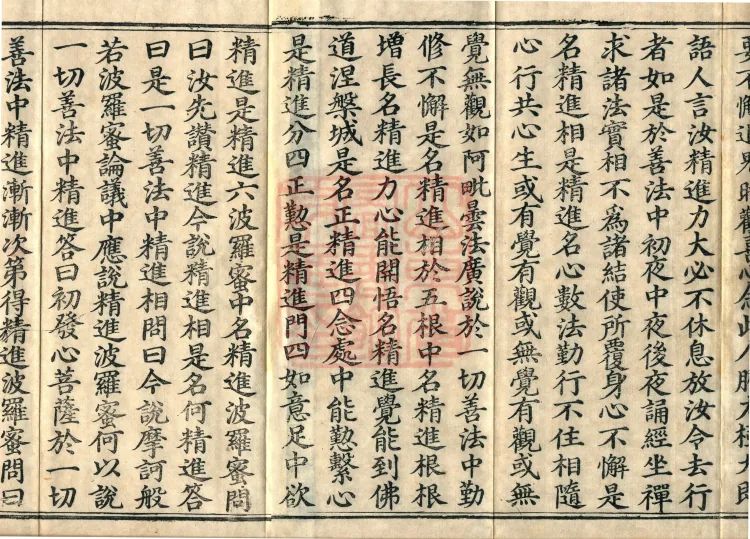 語人言汝精進力大必不休息放汝令去行
者如是於善法中初夜中夜後夜誦經坐禪
求諸法實相不爲諸結使所覆身心不懈是
名精進相是精進名心數法勤行不住相隨
心行共心生或有覺有觀或無覺有觀或無
覺無觀如阿毗曇法廣說於一切善法中勤
修不懈是名精進相於五根中名精進根根
増長名精進力心能開悟名精進覺能到佛
道涅槃城是名正精進四念處中能懃繫心
是精進分四正懃是精進門四如意足中欲
精進是精進六波羅蜜中名精進波羅蜜問
曰汝先讃精進今說精進相是名何精進答
曰是一切善法中精進相問曰今說摩訶般
若波羅蜜論議中應說精進波羅蜜何以說
一切善法中精進答曰初發心菩薩於一切
善法中精進漸漸次第得精進波羅蜜問曰